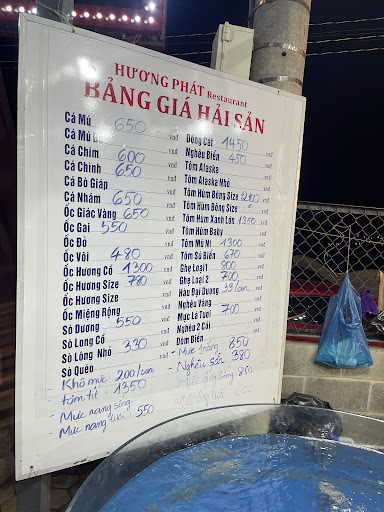 HƯƠNG PHÁT Restaurant
BẢNG GIÁ HẢI SẢN
Cá Mú 650 vnđ
Cá Mú vnđ
Cá Chim 600 vnđ
Cá Chình 650 vnđ
Cá Bò Giáp vnđ
Cá Nhám 650 vnđ
Ốc Giác Vàng 650 vnđ
Ốc Gai 550 vnđ
Ốc Đỏ vnđ
Ốc Vôi 480 vnđ
Ốc Hương Cồ 1300 vnđ
Ốc Hương Size 780 vnđ
Ốc Hương Size vnđ
Ốc Miệng Rộng vnđ
Sò Dương 550 vnđ
Sò Long Cồ vnđ
Sò Lông Nhỏ 330 vnđ
Sò Quéo vnđ
Khô mực 200/con
tôm tít : 1350
- Mực nang sống
Mực nang 550
Dông Cát 1450 vnđ
Nghêu Biển 450 vnđ
Tôm Alaska vnđ
Tôm Alaska Nhỏ vnđ
Tôm Hùm Bông Size vnđ
Tôm Hùm Bông Size vnđ
Tôm Hùm Xanh Lớn 1350 vnđ
Tôm Hùm Baby vnđ
Tôm Mũ Ni 1300 vnđ
Tôm Sú Biển 670 vnđ
Ghẹ Loại 1 800 vnđ
Ghẹ Loại 2 700 vnđ
Hàu Đại Dương 39/con vnđ
Nghêu Vàng vnđ
Mực Lá Tươi 700 vnđ
Nghêu 2 Cồi vnđ
Dòm Biển vnđ
- Mực trứng 850
- Nghêu sần 380
Mực ống sống 860
Mực ống